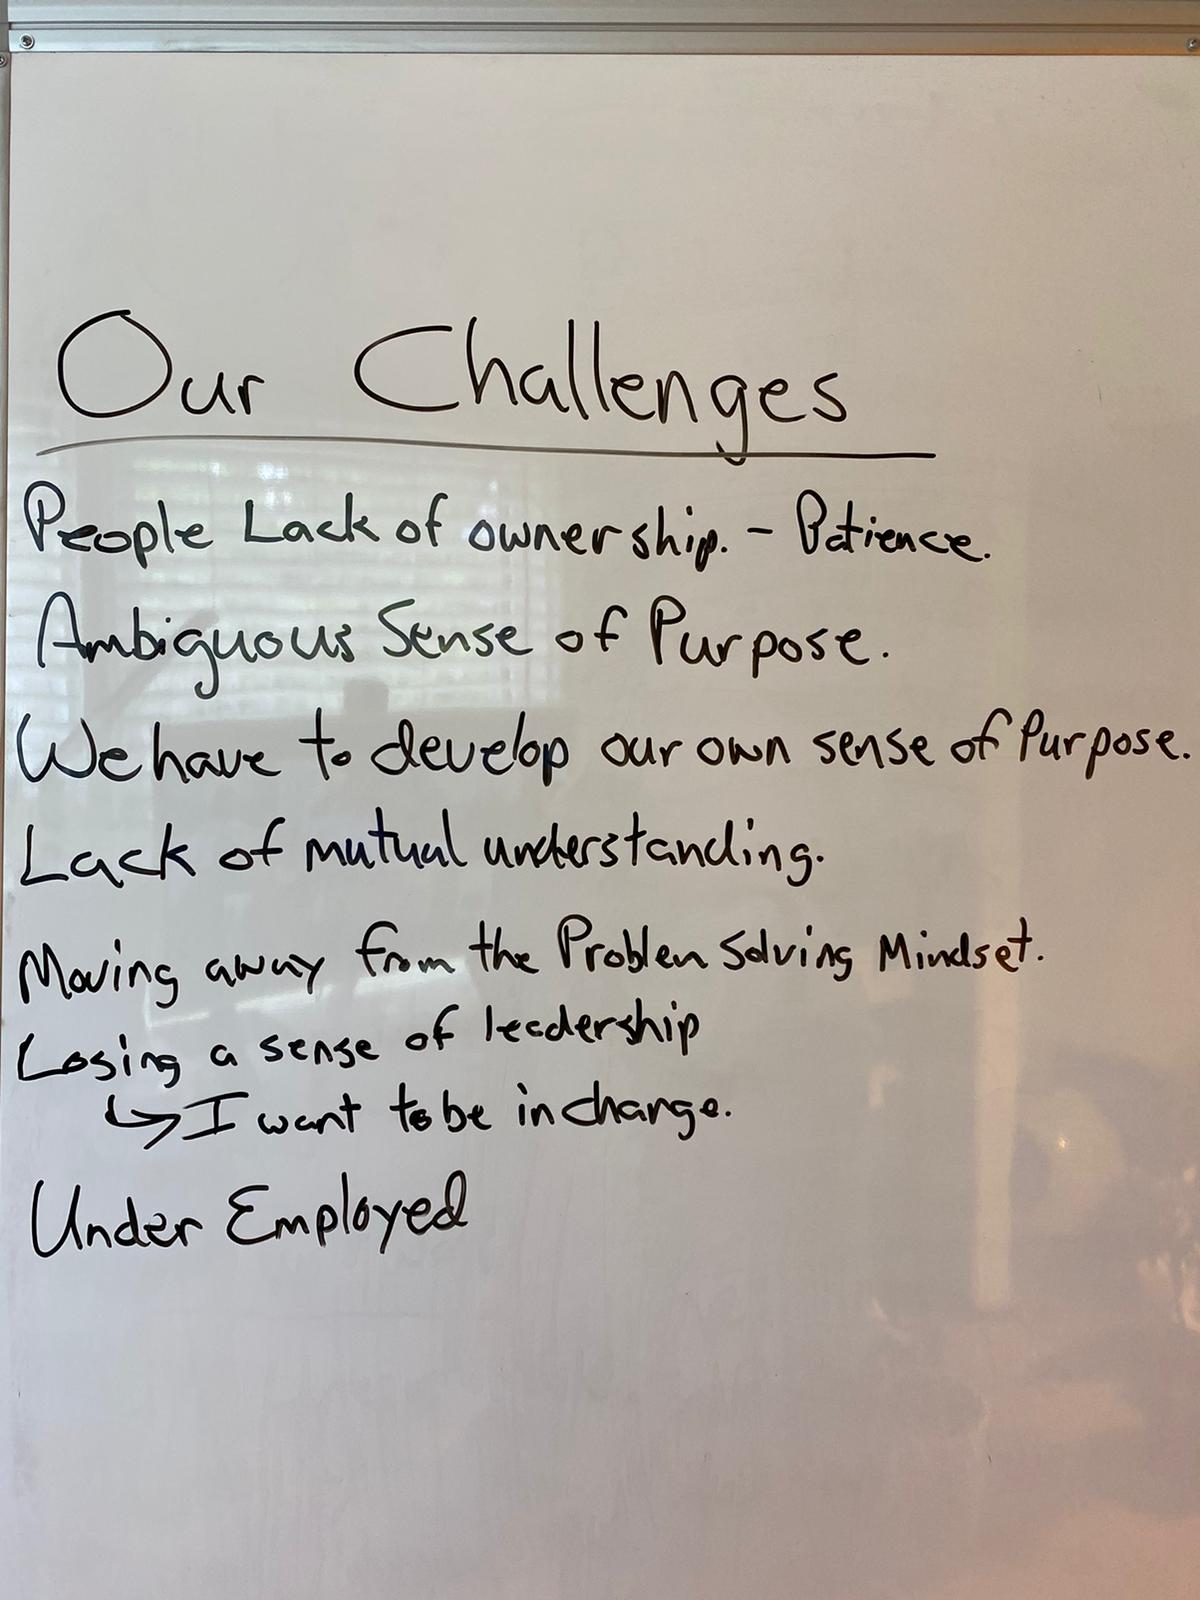 Our Challenges
People Lack of ownership. - Patience.
Ambiguous Sense of Purpose.
We have to develop our own sense of Purpose.
Lack of mutual understanding.
Moving away from the Problem Solving Mindset.
Losing a sense of leadership
↳ I want to be in charge.
Under Employed